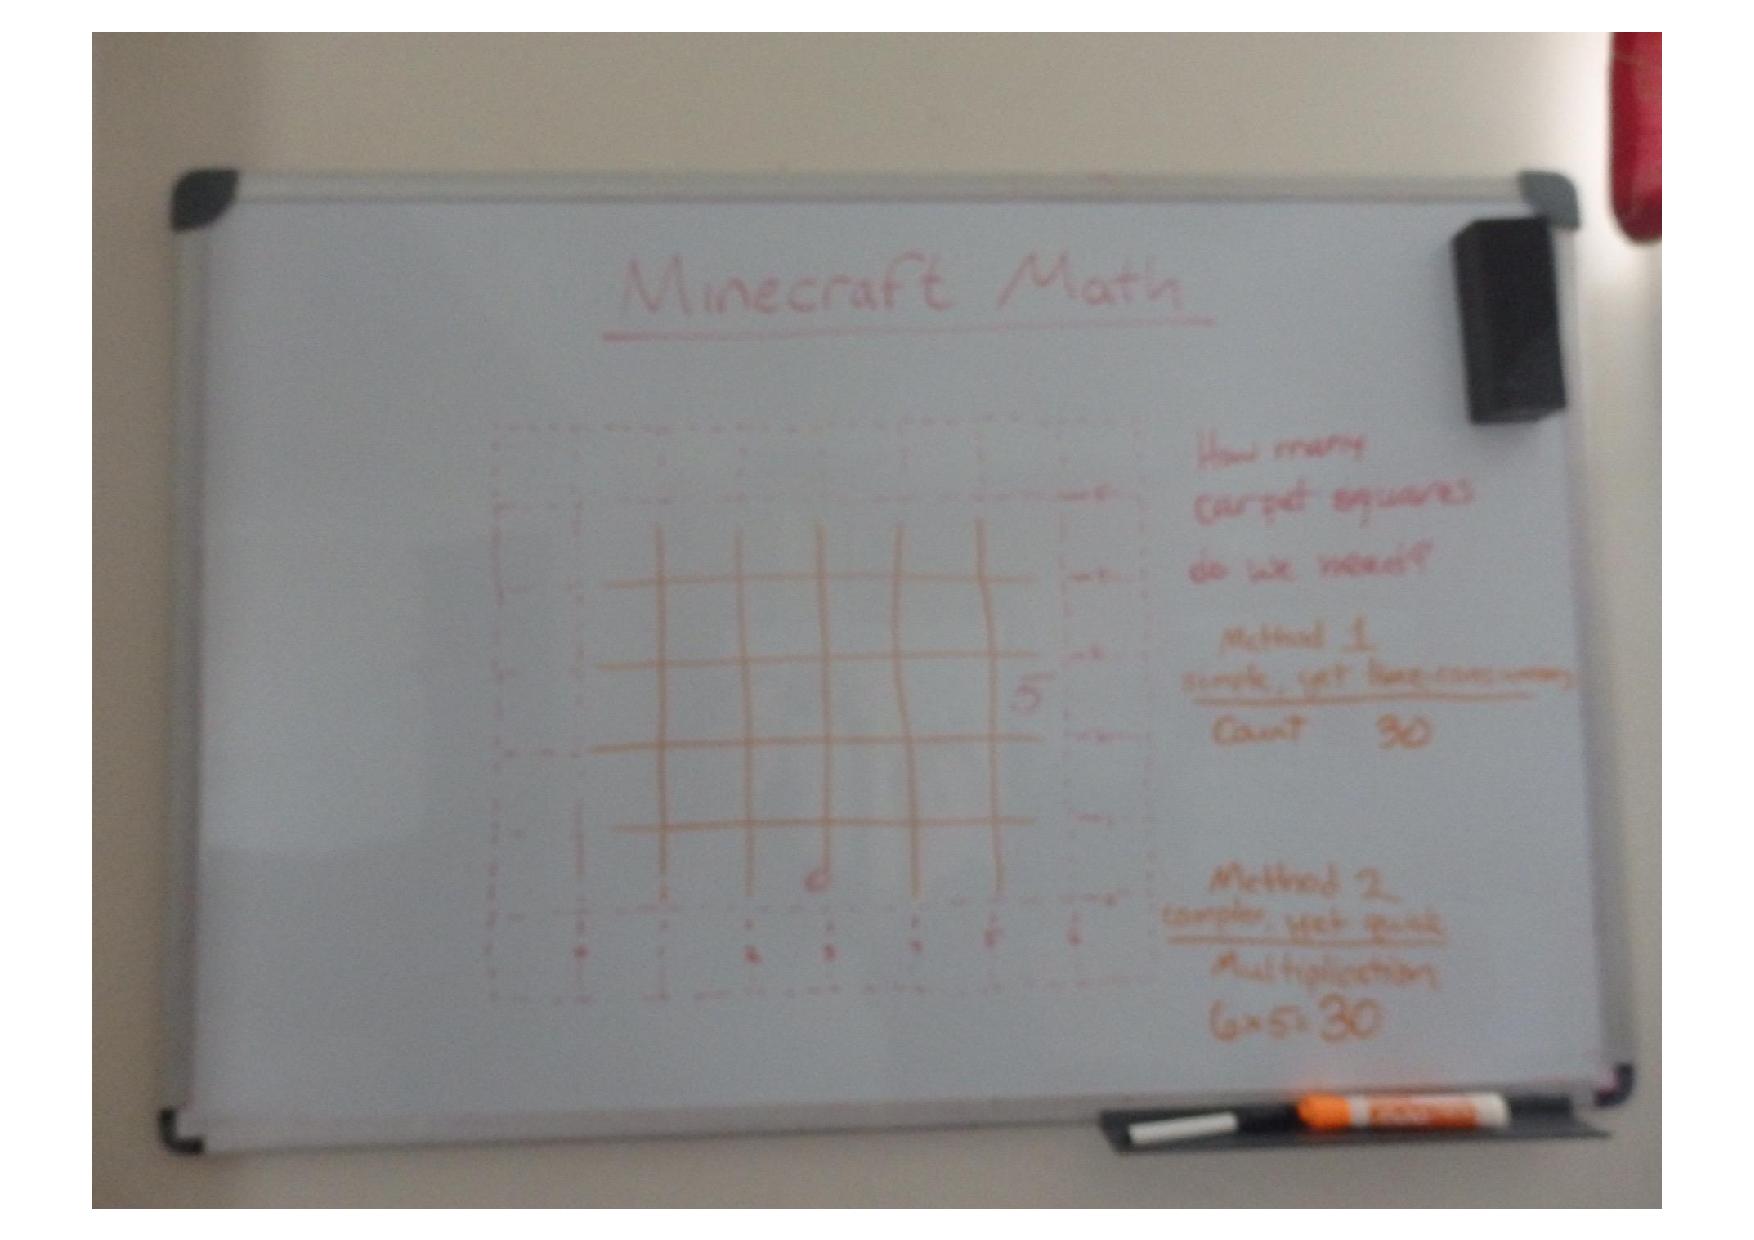 Minecraft Math
How many
carpet squares
do we need?
Method 1
simple, yet time-consuming
Count 30
5
6
2 3 4 5 6
Method 2
complex, yet quick
Multiplication
6×5=30